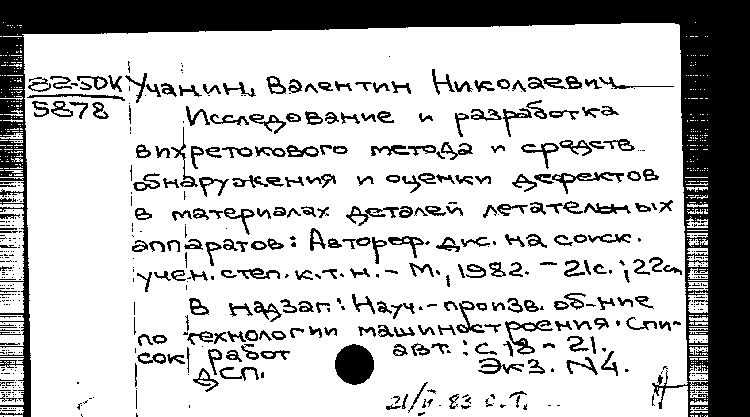 82-5DK Учанин, Валентин Николаевич.
5878
Исследование и разработка
вихретокового метода и средств
обнаружения и оценки дефектов
в материалах деталей летательных
аппаратов: Автореф. дис. на соиск.
учен. степ. к.т.н. – М., 1982. – 21с.; 22см
В надзаг.: Науч.-произв. об-ние
по технологии машиностроения. Спи-
сок работ авт.: с. 18 – 21.
ДСП. Экз. N4.
21/II-83